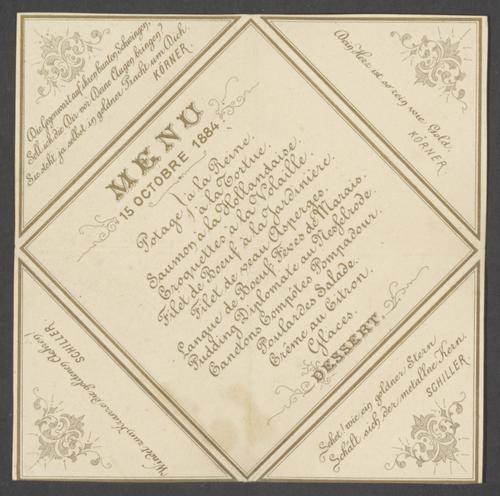 Die Gegenwart auf ihren bunten Schwingen,
Soll ich die Dir vor Deine Augen bringen?
Sie steht ja selbst in goldner Pracht um Dich.
KÖRNER.
Das Herz ist so rein wie Gold.
KÖRNER.
MENU
15 OCTOBRE 1884
Potage à la Reine.
" à la Tortue
Saumon à la Hollandaise
Croquettes à la Volaille
Filet de Boeuf à la Jardinière.
Filet de veau Asperges.
Langue de Boeuf Fèves de Marais.
Pudding Diplomate au Nesselrode.
Canelons Compôtes Pompadour.
Poulardes Salade.
Crème au Citron.
Glaces.
DESSERT.
Windet zum Kranze die goldenen Aehren!
SCHILLER.
Sehet! wie ein goldner Stern
Schält sich der metallne Kern.
SCHILLER.